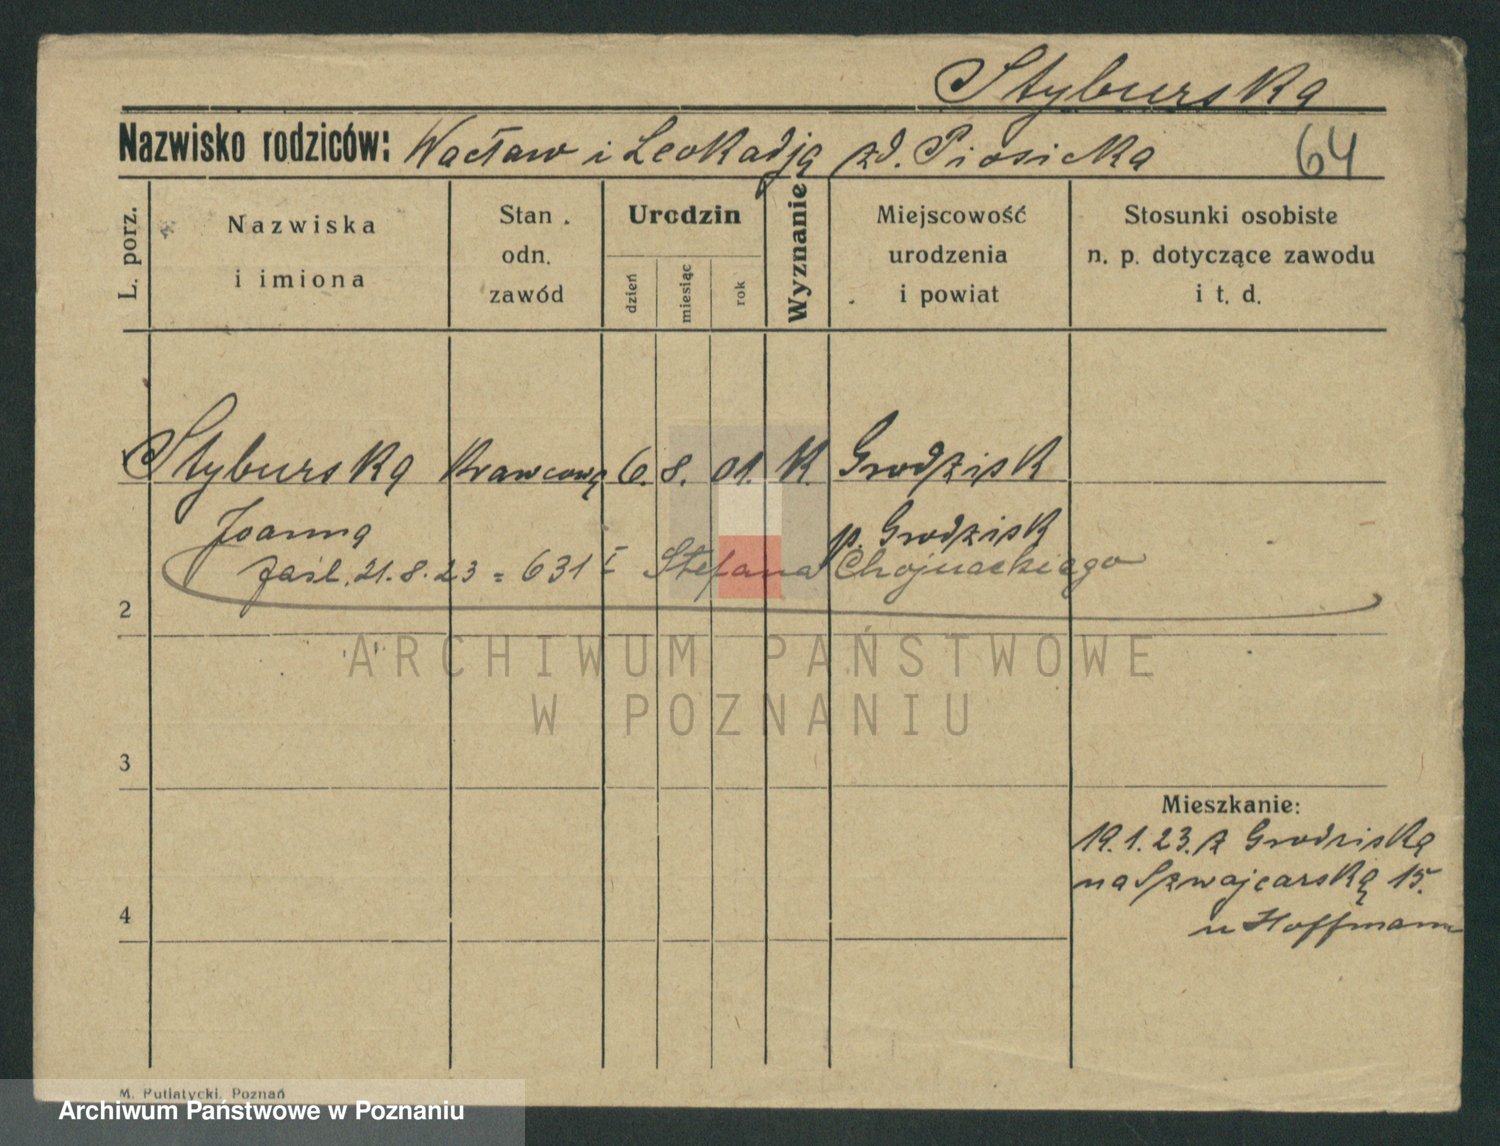 Styburska
Nazwisko rodziców: Wacław i Leokadja zd. Piosicka 64
L. porz.
Nazwiska
i imiona
Stan
odn.
zawód
Urodzin
dzień
miesiąc
rok
Wyznanie
Miejscowość
urodzenia
i powiat
Stosunki osobiste
n. p. dotyczące zawodu
i t. d.
Styburska Krawcowa 6. 8. 01. K. Grodzisk
Joanna p. Grodzisk
zaśl. 21.8.23 = 631 I Stefana Chojnackiego
2
ARCHIWUM PAŃSTWOWE
W POZNANIU
3
Mieszkanie:
19.1.23. z Grodziska
na Szwajcarską 15.
u Hoffmann
4
M. Putiatycki, Poznań
Archiwum Państwowe w Poznaniu